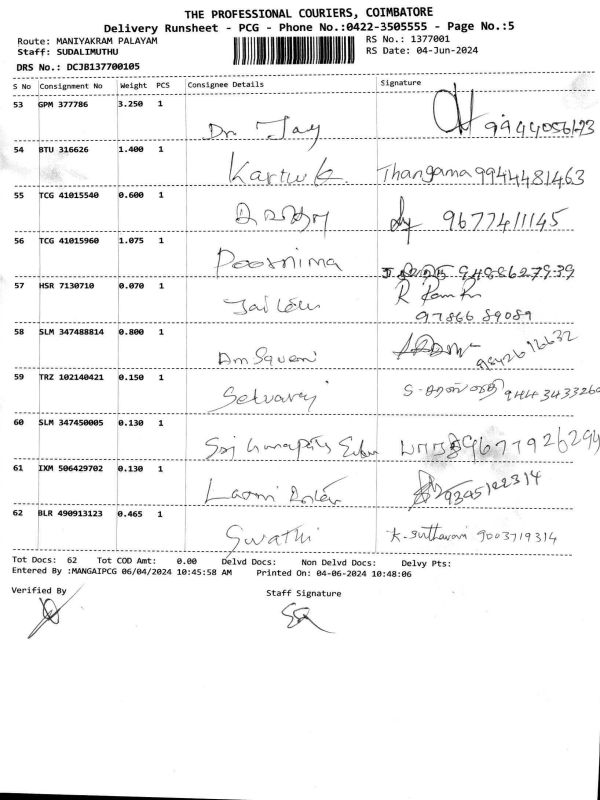 THE PROFESSIONAL COURIERS, COIMBATORE
Delivery Runsheet - PCG - Phone No.:0422-3505555 - Page No.:5
Route: MANIYAKRAM PALAYAM RS No.: 1377001
Staff: SUDALIMUTHU RS Date: 04-Jun-2024
DRS No.: DCJB137700105
S No Consignment No Weight PCS Consignee Details Signature
53 GPM 377786 3.250 1
Dr. Jay 9944056123
54 BTU 316626 1.400 1
Karthik. Thangama 9944481463
55 TCG 41015540 0.600 1
9677411145
56 TCG 41015960 1.075 1
Poornima 9488627939
57 HSR 7130710 0.070 1
R
97866 89089
58 SLM 347488814 0.800 1
9842616632
59 TRZ 102140421 0.150 1
Selvaraj 9443433260
60 SLM 347450005 0.130 1
Sri 9677926294
61 IXM 506429702 0.130 1
Laxmi 9345122314
62 BLR 490913123 0.465 1
Swathi K. 9003719314
Tot Docs: 62 Tot COD Amt: 0.00 Delvd Docs: Non Delvd Docs: Delvy Pts:
Entered By :MANGAIPCG 06/04/2024 10:45:58 AM Printed On: 04-06-2024 10:48:06
Verified By Staff Signature